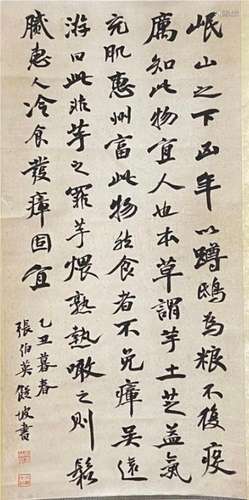 岷山之下凶年以蹲鴟為粮不復疫
厲知此物宜人也本草謂芋土芝益氣
充肌惠州富此物然食者不免瘴吳遠
游曰此非芋之罪芋煨熟熱噉之則鬆
膩惠人冷食發瘴固宜
乙丑暮春
張伯英坡書